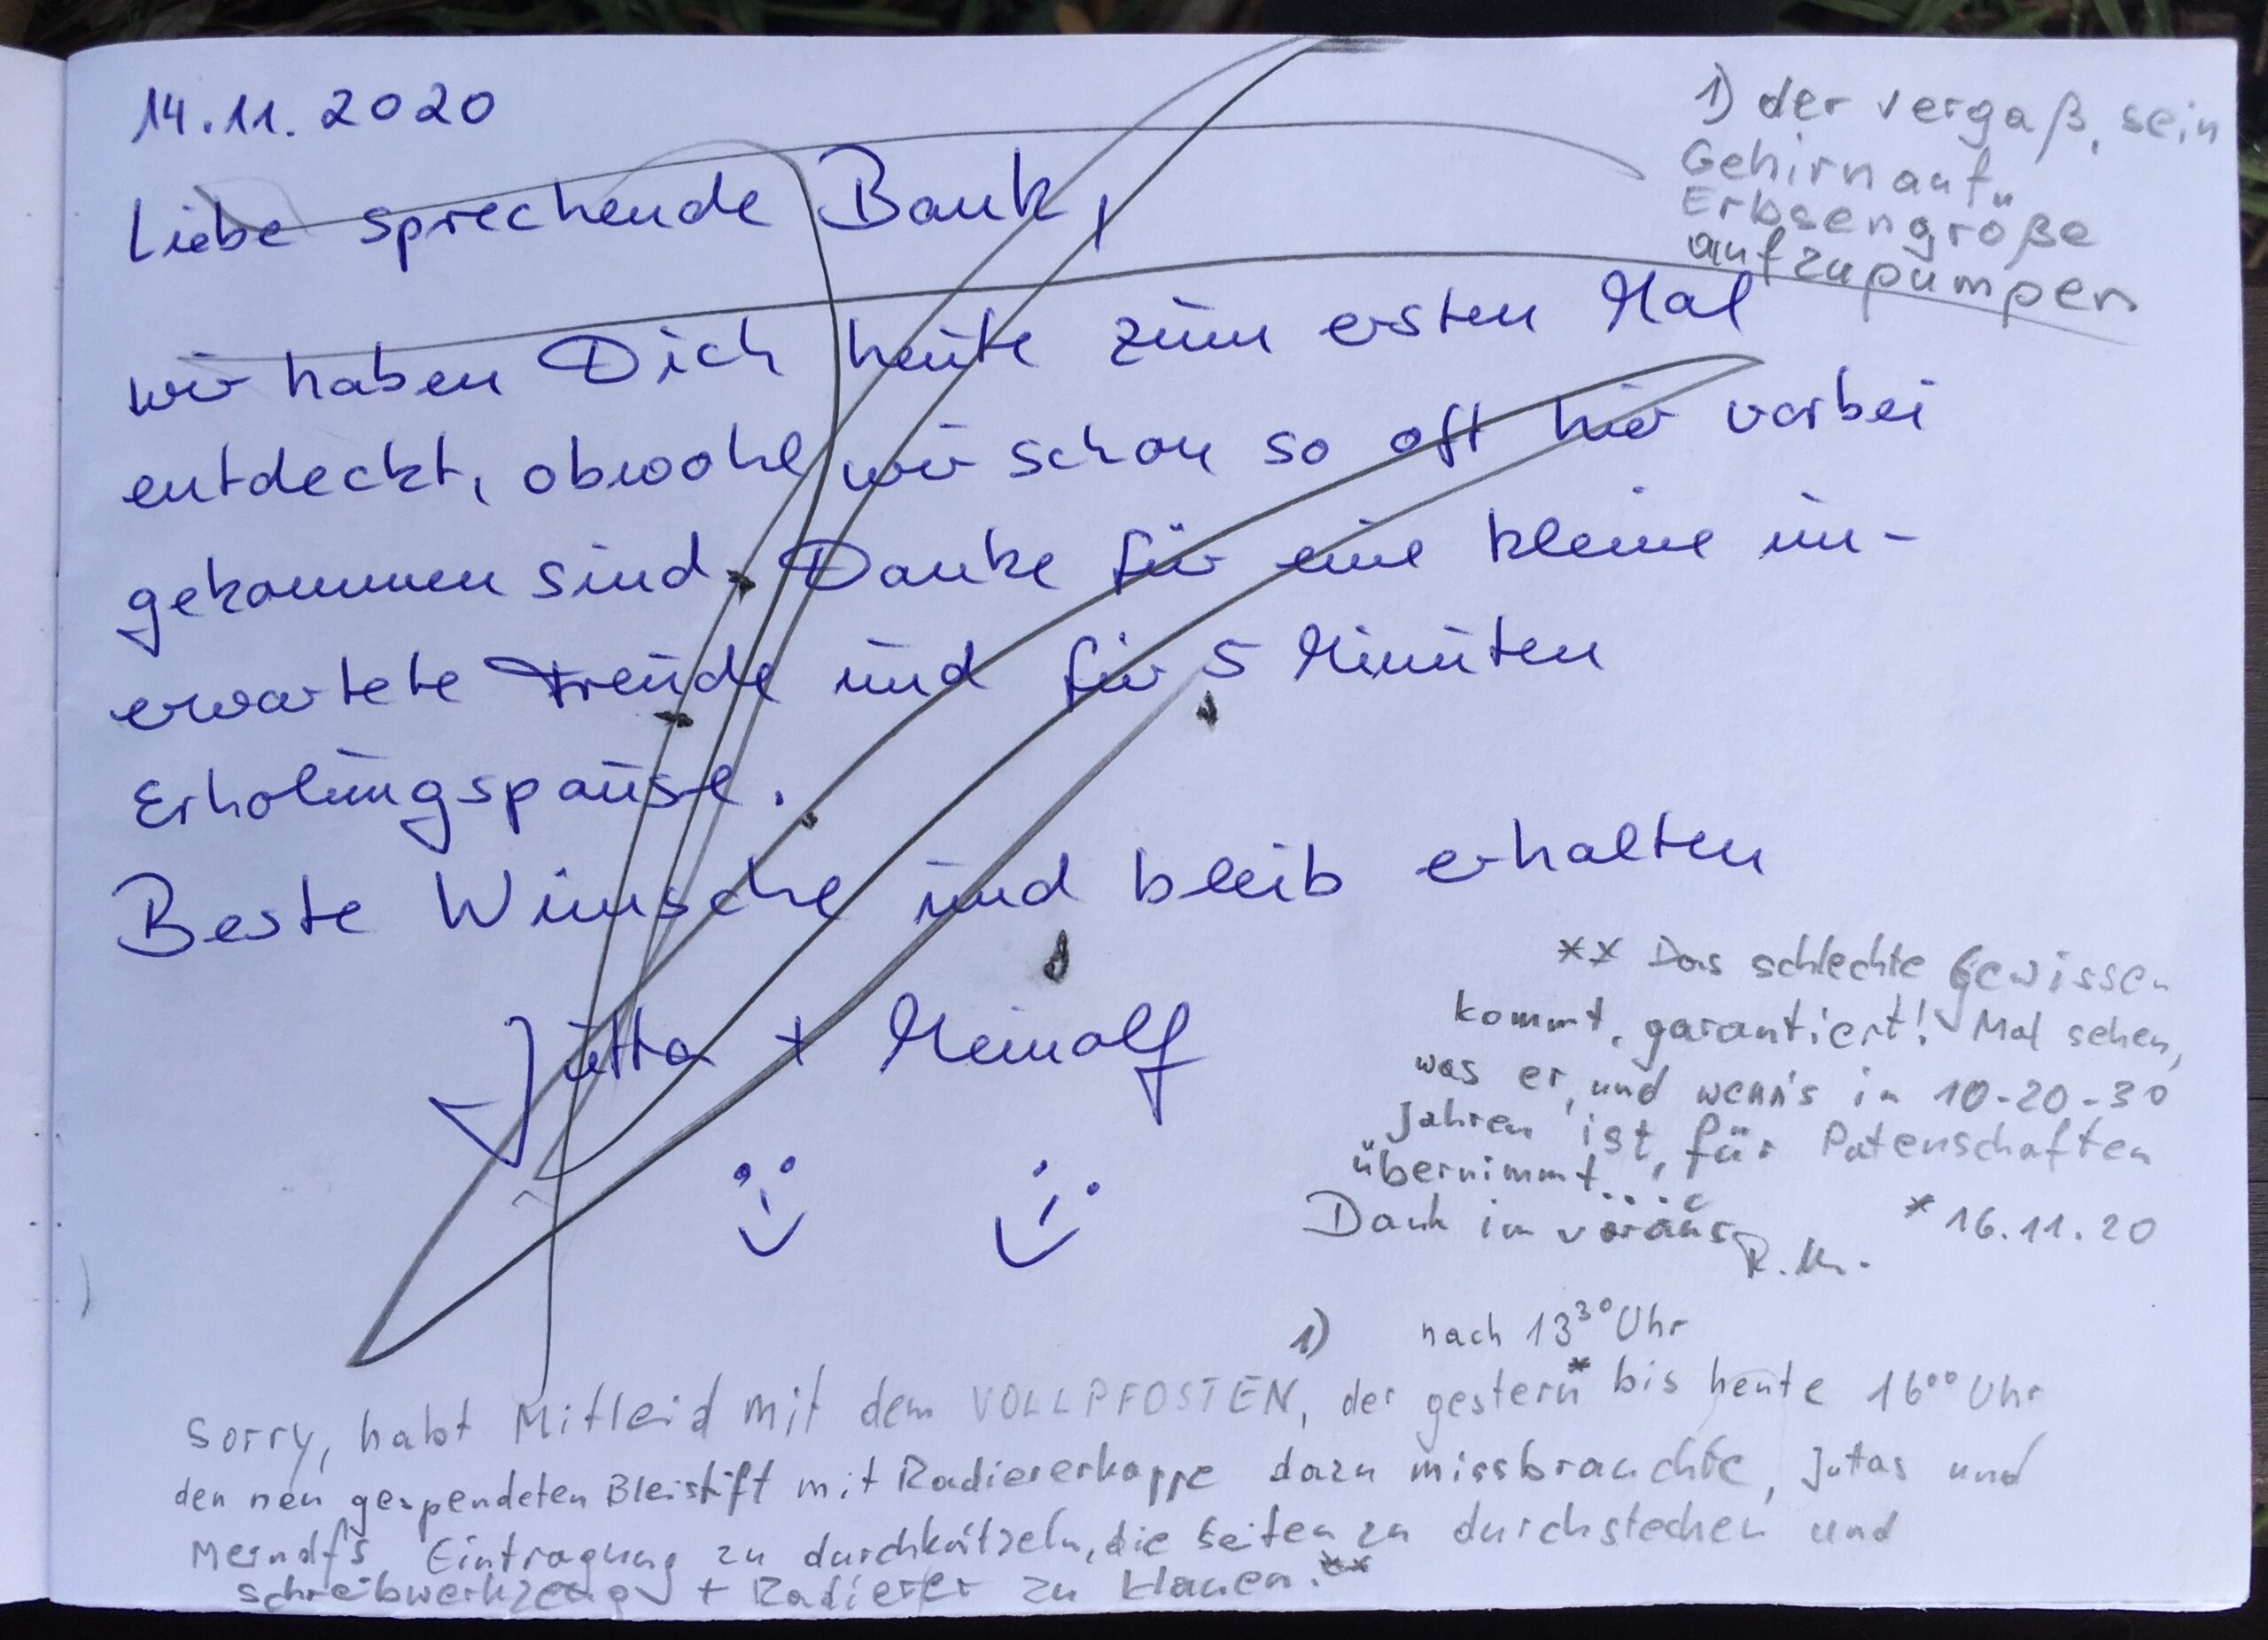 14.11.2020
Liebe sprechende Bank,
wir haben Dich heute zum ersten Mal
entdeckt, obwohl wir schon so oft hier vorbei
gekommen sind. Danke für eine kleine un-
erwartete Freude und für 5 Minuten
Erholungspause.
Beste Wünsche und bleib erhalten
Jutta + Meinolf
1) der vergaß, sein
Gehirn auf
Erbsengröße
aufzupumpen
** Das schlechte Gewissen
kommt, garantiert! Mal sehen,
was er, und wenn's in 10-20-30
Jahren ist, für Patenschaften
übernimmt...
Dank im voraus
R. K.
* 16.11.20
1) nach 13³⁰ Uhr
Sorry, habt Mitleid mit dem VOLLPFOSTEN, der gestern* bis heute 16⁰⁰ Uhr
den neu gespendeten Bleistift mit Radiererkappe dazu missbrauchte, Jutas und
Meinolf's Eintragung zu durchkritzeln, die Seiten zu durchstechen und
Schreibwerkzeug + Radierer zu klauen.**